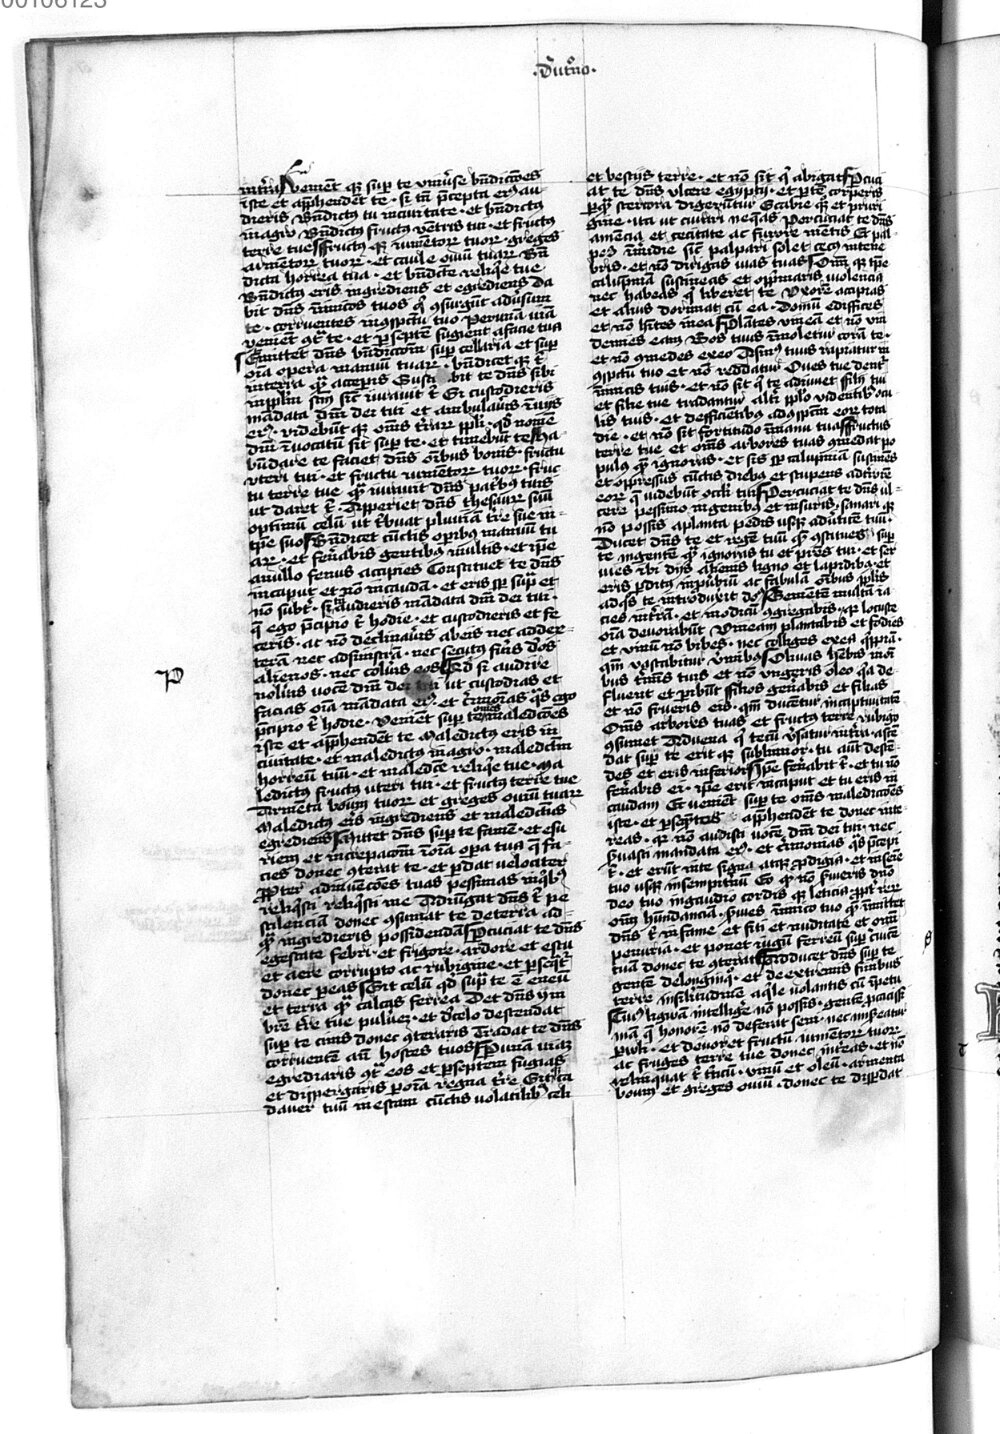 00106123
·Dūtͦno·
int̄ra Veniēt qꝫ sup te vniūse bn̄dicc̄ōes
iste et app̄hendēt te · si tn̄ p̄cepta eiꝰ au
dieris Bn̄dictꝰ tu in ciuitate · et bn̄dictꝰ
in agro Bn̄dictꝰ fructꝰ vētris tui · et fructꝰ
terre tue fructꝰ qꝫ iumētoꝝ tuoꝝ · greges
armētoꝝ tuoꝝ · et caule ouiū tuaꝝ Bn̄
dicta horrea tua · et bn̄dicte reliq̄e tue
Bn̄dictꝰ eris ingrediens et egrediens Da
bit dn̄s īimicos tuos qͥ ꝯsurgūt adūsum
te · corruentes in ꝯspctū tuo Per unā uiā
venient ꝯͣ te · et ꝑ septē fugient a facie tua
Emittet dn̄s bn̄dictōm̄ sup cellaria et sup
oīa opera manuū tuaꝝ · bn̄dicet qꝫ tͥ
in terra qͣꝫ acceperis Susci bit te dn̄s sibi
in pplm̄ scm̄ sic̄ iurauit tͥ Si custodieris
mādata dn̄i dei tui et ambulaūis ī uijs
eiꝰ · videbūt qꝫ om̄s t̄raꝝ ppli · qd̄ nomē
dn̄i īuocatū sit sup te · et timebūt te Ha
būdare te faciet dn̄s oībus bonis · fructu
vteri tui · et fructu iumētoꝝ tuoꝝ · fruc
tu terre tue qͣꝫ iurauit dn̄s pat̄bꝰ tuis
ut daret tͥ Apperiet dn̄s thesauꝝ suū
optimū celū ut tͥbuat pluuiā t̄re sue in
tp̄e suo Bn̄dicet cūctis oꝑibꝰ manuū tu
aꝝ · et fen̄abis gentibꝰ multis · et ip̄e
a nullo fenus accipies Constituet te dn̄s
in caput et nō in caudā · et eris sp̄ sup̄ et
nō subtꝰ · si audieris mādata dn̄i dei tui ·
q̄ ego p̄cipio tͥ hodie · et custodieris et fe
ceris · at nō declinaūis ab eis nec ad dex-
terā nec ad sinistrā · nec secutꝰ fūis d̄os
alienos · nec colūis eos Qd̄ si audire
nolūis uocē dn̄i dei tui ut custodias et
facias oīa mādata eiꝰ · et c̄rimonias qͣs ego
p̄cipio tͥ hodie · Venient sup te om̄s maledicc̄ōes
iste et app̄hendēt te Maledictꝰ eris in
ciuitate · et maledictꝰ in agro · maledictū
horreū tuū · et maledc̄e reliq̄e tue · Ma
ledictꝰ fructꝰ uteri tui · et fructꝰ terre tue
Armēta boum tuoꝝ et greges ouiū tuaꝝ
Maledictꝰ eris ingrediens et maledictus
egrediens Mittet dn̄s sup te famē · et esu
riem et increpac̄om̄ ī oīa opa tua q̄ fa-
cies donec ꝯterat te · et ꝑdat velociter
Ꝓpter adinuēc̄ōes tuas pessimas in qͥbꝰ
reliqͥsti me Adiūgat dn̄s tͥ pe
stilenciā donec ꝯsumat te de terra ad
qͣꝫ ingredieris possidendā Ꝑcuciat te dn̄s
egestate febri · et frigore · ardore et estu
et aere corrupto ac rubigine · et ꝑseqͣtꝰ
donec ꝑeas Sit celū qd̄ sup te ē eneū
et terra qͣꝫ calcas ferrea Det dn̄s ym
brē t̄re tue puluēꝫ · et d̄ celo descendat
sup te cinis donec ꝯteraris Tradat te dn̄s
corruentē an̄ hostes tuos Ꝑ unā uiaꝫ
egrediaris ꝯͣ eos et ꝑ septem fugias
et dispergaris ꝑ oīa regna t̄re Sitqꝫ ca
dauer tuū in escam cūctis volatilibꝰ celi
P
et bestijs terre · et nō sit qͥ abigat Ꝑcuci
at te dn̄s ulcere egypti · et ꝑtē corporis
ꝑ qͣꝫ stercora digeruntur Scabie qꝫ et pruri
gine · ita ut curari neqͣas Percuciat te dn̄s
amēcia et cecitate ac furore mētis Et pal-
pes ī m̄idie sic̄ palpari solet cecꝰ in tene
bris · et nō dirigas uias tuas Om̄i qꝫ tp̄e
calūpniam sustineas et opp̄maris violencia
nec habeas qͥ liberet te Vxorē accipias
et alius dormiat cū ea · Domū edifices
et nō hītes in ea Plātes vineā et nō vin
demies eam Bos tuus īmoletur corā te ·
et nō ꝯmedes ex eo Asinꝰ tuus rapiatur in
ꝯspctū tuo et nō reddatur Oues tue dent̄
īimicis tuis · et nō sit qͥ te adiuuet Filij tui
et filie tue tradantur alt̄i pplo videntibꝰ ocu
lis tuis · et defficientibꝰ ad ꝯspctū eoꝝ tota
die · et nō sit fortitudo ī manu tua Fructus
terre tue et om̄s labores tuos ꝯmedat po
pulꝰ qͣꝫ ignoras · et sis sp̄ calūpniam sustinēs
et oppressus cūctis diebꝰ et stupens ad t̄rorē
eoꝝ q̄ uidebūt oc̄li tui Percuciat te dn̄s ul-
cere pessimo in genibꝰ et in suris · sanari qꝫ
nō possis a planta pedis usqꝫ ad ūticē tuū ·
Ducet dn̄s te et regē tuū qͣꝫ ꝯstitues sup
te in gentē qͣꝫ ignoras tu et pr̄es tui · et ser
uies ibi dijs alienis ligno et lapidibꝰ · et
eris ꝑditꝰ in ꝓūbiū ac fabulā oībus pplis
ad qͦs te introduxit dn̄s Sementē multā ia
cies in t̄rā · et modicū ꝯgregabis · qꝛ locuste
oīa deuorabūt Vineam plantabis et fodies
et vinū nō bibes · nec colliges ex ea qͥppiā ·
qm̄ vastabitur v̄mibꝰ Oliuas hēbis in om̄i
bus t̄mīs tuis et nō ungeris oleo qͣ de-
fluent et ꝑibūt Filios gen̄abis et filias
et nō frueris eis · qm̄ ducentur in captiuitatē
Om̄s arbores tuas et fructꝰ terre rubigo
ꝯsumet Aduena qͥ tecū v̄satur in t̄ra · ascē
dat sup te erit qꝫ sublimior · tu aut̄ descē-
des et eris inferior Ip̄e fen̄abit tͥ · et tu nō
fen̄abis ei · ip̄e erit in caput et tu eris in
caudam Et venient sup te om̄s maledictōes
iste · et ꝑseqͣntes app̄hendēt te donec inte
reas · qꝛ nō audisti uocē dn̄i dei tui · nec
ẜuasti mandata eiꝰ · et c̄rimonias qͣs p̄cepi
tͥ · et erūt in te signa atqꝫ ꝓdigia · et in semīe
tuo usqꝫ in sempitnū Eo qͦ nō ẜuieris dn̄o
deo tuo in gaudio cordis qꝫ leticia ꝓpt̄ reꝝ
om̄ hundanciā · ẜuies īimico tuo qͣꝫ īmittet
dn̄s tͥ in fame et siti et nuditate et om̄i
penuria · et ponet iugū ferreū sup c̄uicē
tuā donec te ꝯterat Adducet dn̄s sup te
gentē de longinqͦ · et de extremis finibus
terre in silitudinē aqͥle volantis cū īpetu
Cuiꝰ liguam intelligē nō possis · gentē ꝓcaciss̄i
mā q̄ honorē nō deferat seni · nec mis̄eatur
ꝑuuli · et deuoret fructū iumētoꝝ tuoꝝ
ac fruges terre tue donec int̄eas · et nō
relinquat tͥ t̄ticū · vinū et oleū · armenta
boum et greges ouiū · donec te disꝑdat